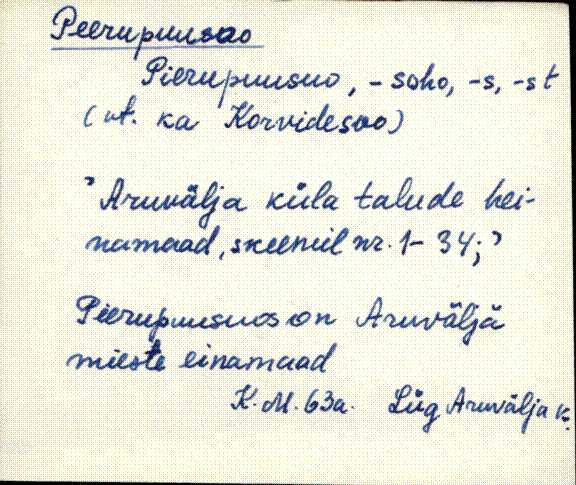 Peerupuusoo
Pierupuusuo, -soho, -s, -st
(vt. ka Korvidesoo)
"Aruvälja küla talude hei-
namaad, skeemil nr. 1-34;"
Pierupuusuos on Aruväljä
mieste einamaad
K.M. 63a. Lüg Aruvälja k.